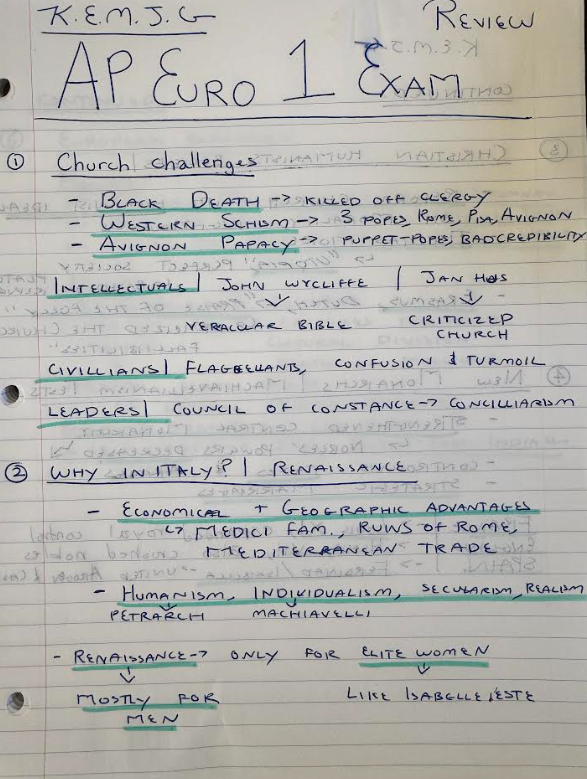 K.E.M.J.G
REVIEW
AP EURO 1 EXAM
① Church challenges
- BLACK DEATH -> KILLED OFF CLERGY
- WESTERN SCHISM -> 3 POPES, ROME, PISA, AVIGNON
- AVIGNON PAPACY -> PUPPET-POPES, BAD CREDIBILITY
INTELLECTUALS | JOHN WYCLIFFE | JAN HUS
VERACULAR BIBLE CRITICIZED
CHURCH
CIVILLIANS | FLAGBELLANTS, CONFUSION & TURMOIL
LEADERS | COUNCIL OF CONSTANCE -> CONCILLIARISM
② WHY IN ITALY? | RENAISSANCE
- ECONOMICAL + GEOGRAPHIC ADVANTAGES
↳ MEDICI FAM., RUINS OF ROME,
MEDITERRANEAN TRADE
- HUMANISM, INDIVIDUALISM, SECULARISM, REALISM
PETRARCH MACHIAVELLI
- RENAISSANCE -> ONLY FOR ELITE WOMEN
MOSTLY FOR LIKE ISABELLE
MEN